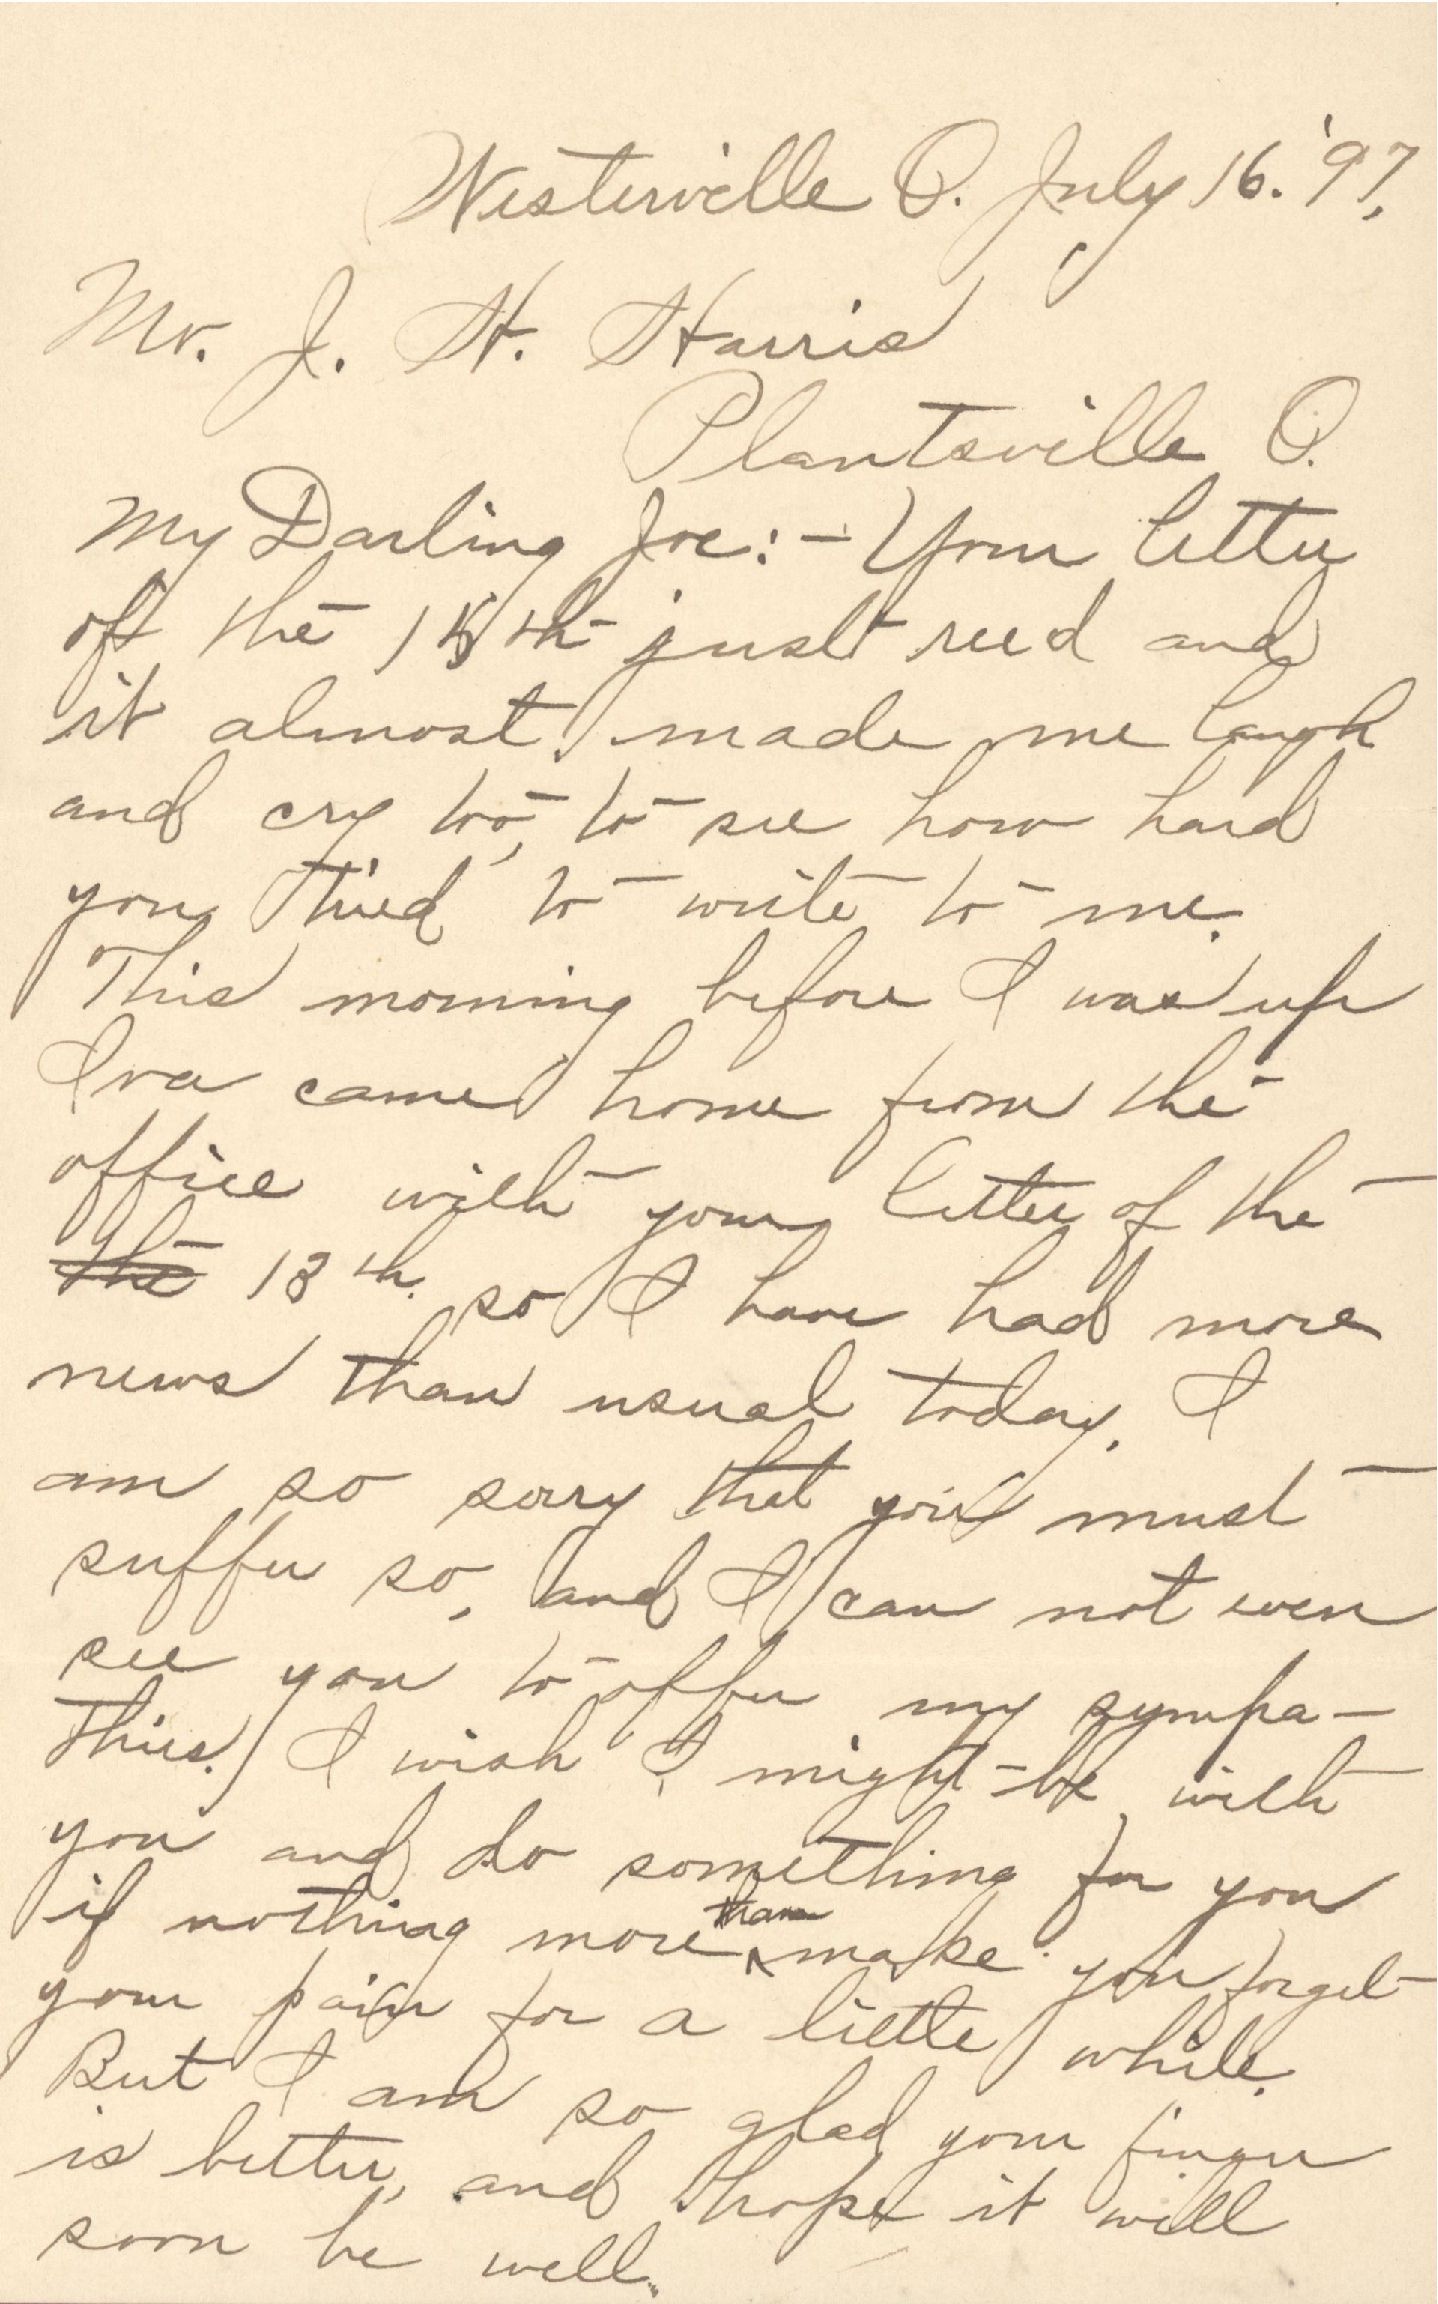 Westerville O. July 16. '97.
Mr. J. H. Harris
Plantsville O.
My Darling Joe:- Your letter
of the 15th just recd and
it almost made me laugh
and cry too, to see how hard
you tried to write to me.
This morning before I was up
Iva came home from the
office with your letter of the
the 13th. so I have had more
news than usual today. I
am so sorry that you must
suffer so, and I can not even
see you to offer my sympa-
thies. I wish I might be with
you and do something for you
if nothing more than make you forget
your pain for a little while.
But I am so glad your finger
is better, and hope it will
soon be well.